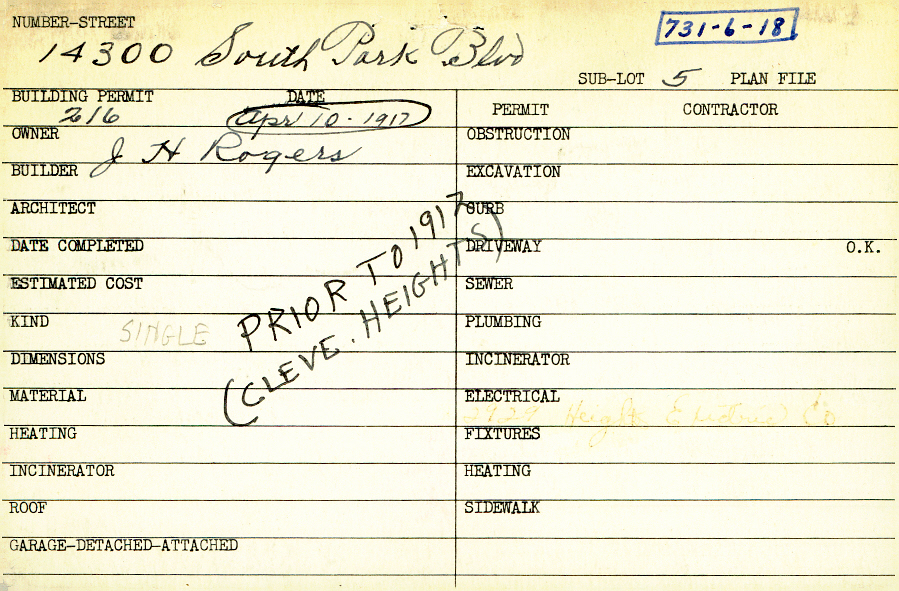 NUMBER-STREET
731-6-18
14300 South Park Blvd
SUB-LOT 5 PLAN FILE
BUILDING PERMIT DATE
216 Apr 10-1917
PERMIT CONTRACTOR
OWNER
J H Rogers
OBSTRUCTION
BUILDER
EXCAVATION
ARCHITECT
CURB
DATE COMPLETED
DRIVEWAY O.K.
ESTIMATED COST
SEWER
PRIOR TO 1917
(CLEVE. HEIGHTS)
KIND SINGLE
PLUMBING
DIMENSIONS
INCINERATOR
MATERIAL
ELECTRICAL
2929 Heights Electrical Co
HEATING
FIXTURES
INCINERATOR
HEATING
ROOF
SIDEWALK
GARAGE-DETACHED-ATTACHED